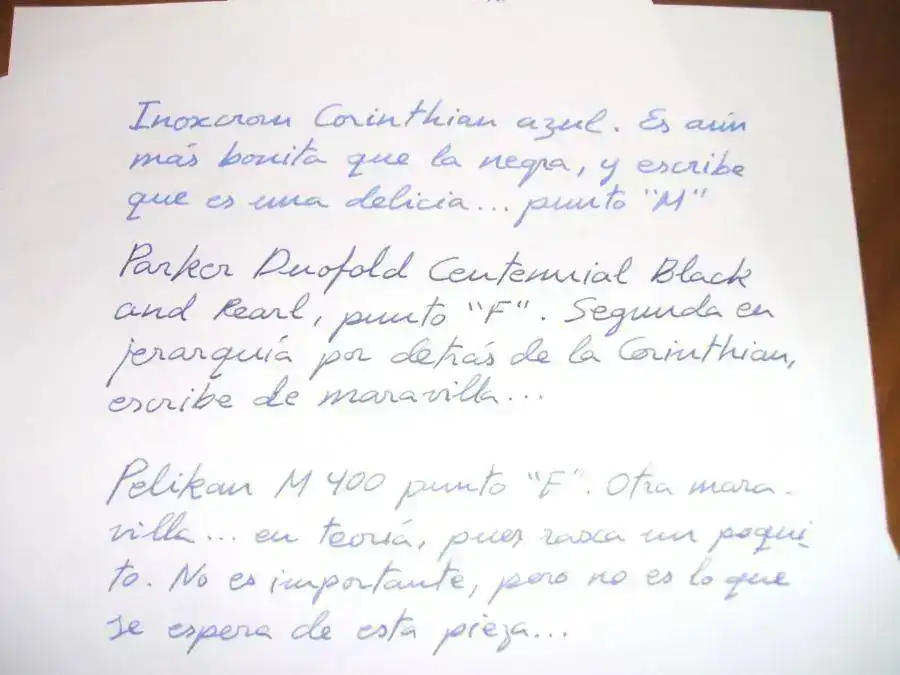 Inoxcrom Corinthian azul. Es aún
más bonita que la negra, y escribe
que es una delicia... punto "M"
Parker Duofold Centennial Black
and Pearl, punto "F". Segunda en
jerarquía por detrás de la Corinthian,
escribe de maravilla...
Pelikan M 400 punto "F". Otra mara-
villa... en teoría, pues rasca un poqui-
to. No es importante, pero no es lo que
se espera de esta pieza...